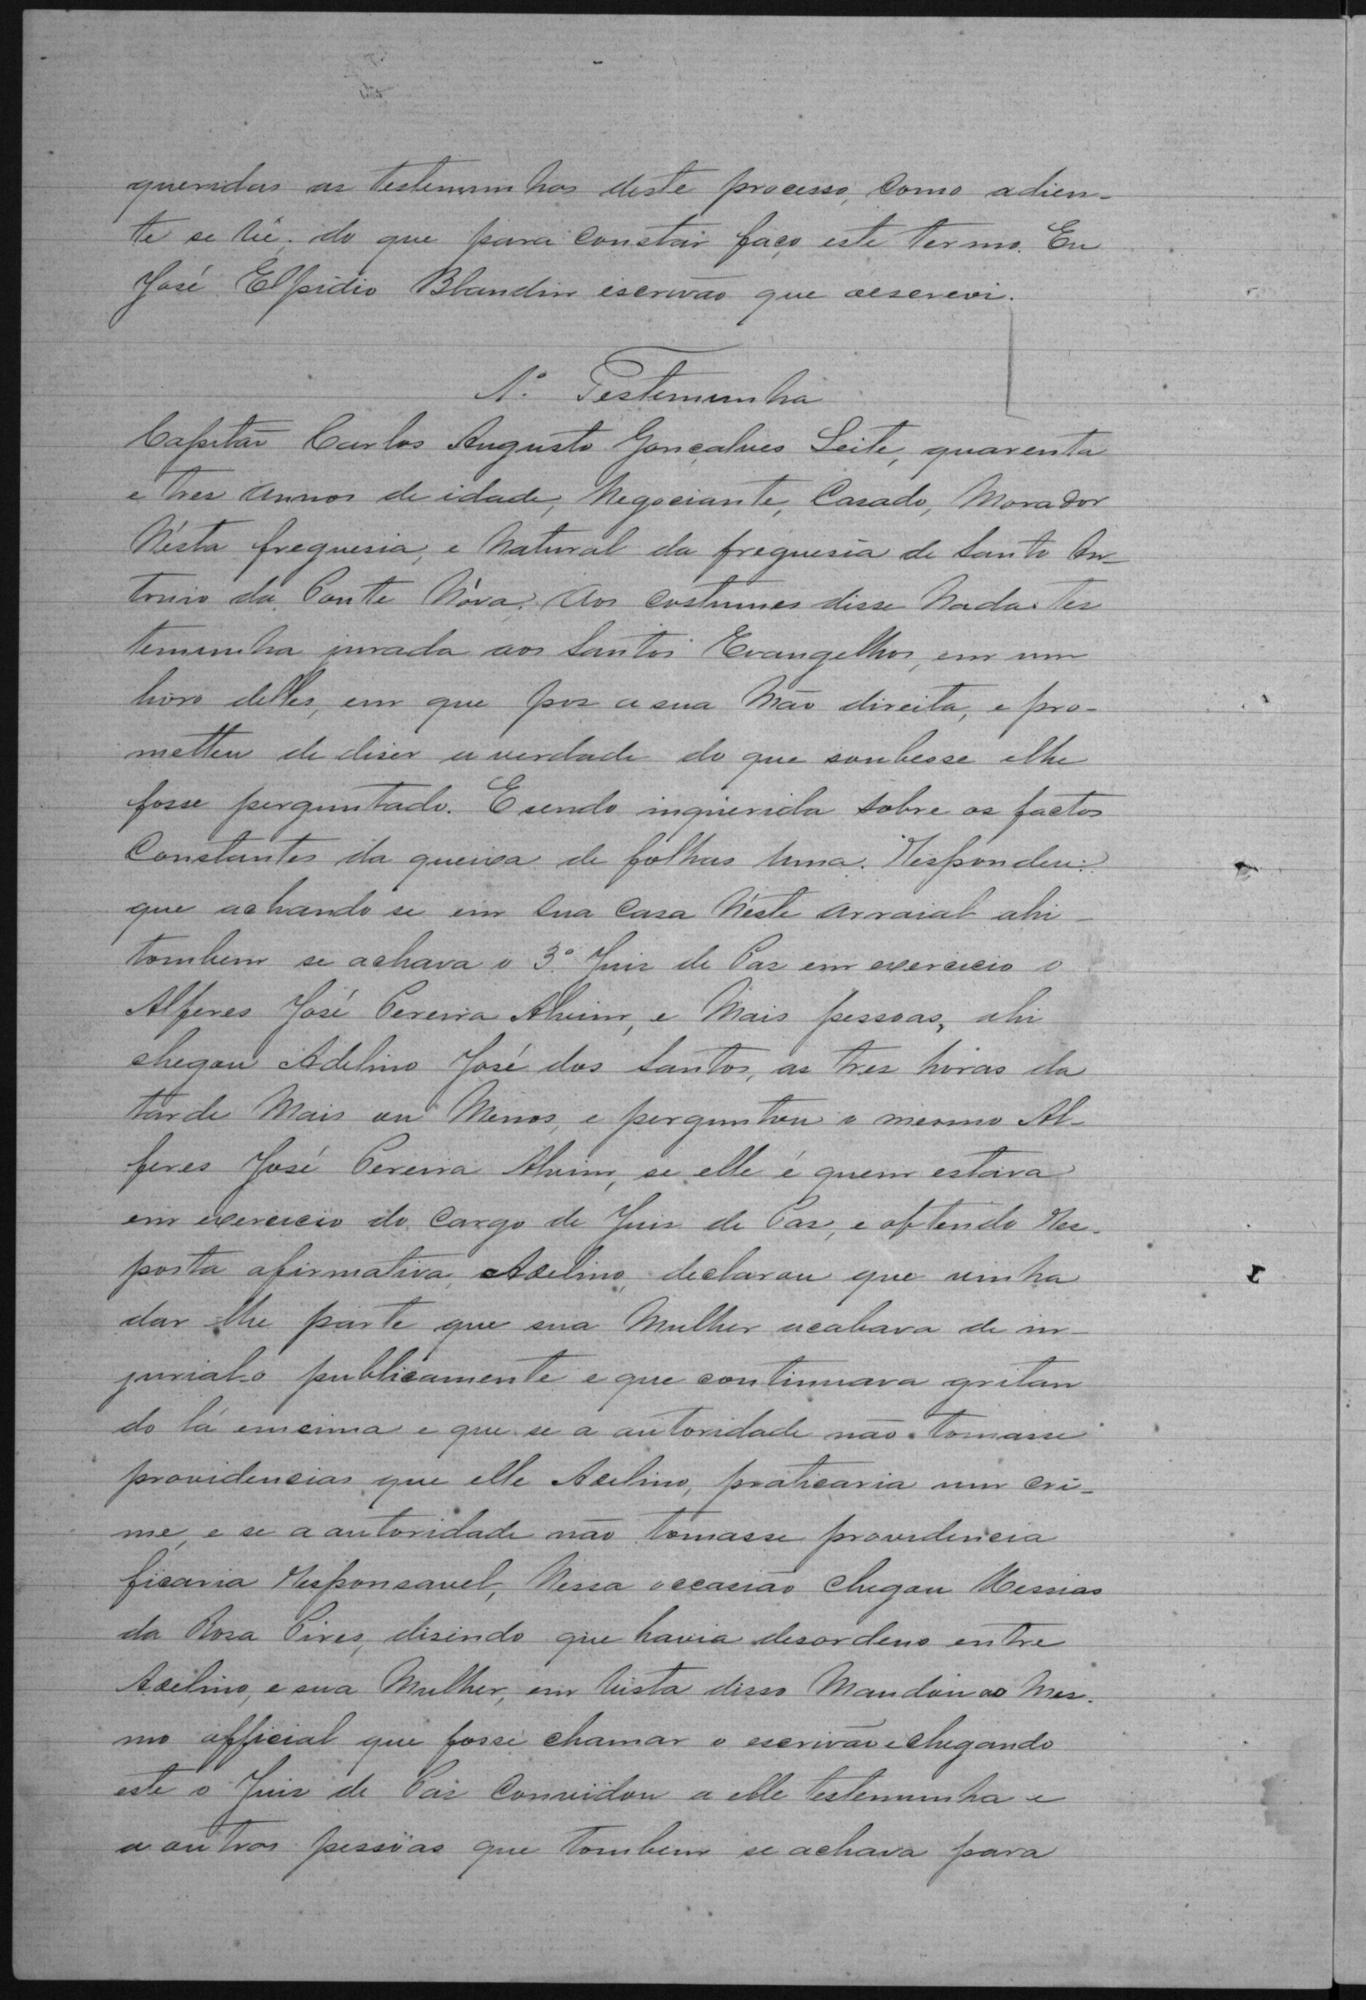 queridas as testemunhas deste processo, como adien-
te se vê; do que para constar faço este termo. Eu
José Elpidio Blandin escrivão que o escrevi.
1ª Testemunha
Capitão Carlos Augusto Gonçalves Leite, quarenta
e tres annos de idade, Negociante, Casado, Morador
Nésta freguesia, e Natural da freguesia de Santo An-
tonio da Ponte Nóva. Aos costumes disse Nada. Tes
temunha jurada aos Santos Evangelhos, em um
livro delles, em que poz a sua Mão direita, e pro-
metteu de diser a verdade do que soubesse elhe
fosse perguntado. E sendo inquirida sobre os factos
Constantes da queixa de folhas uma. Respondeu:
que achando se em sua Casa Néste arraial ahi
tombem se achava o 3º Juis de Paz em exercicio o
Alferes José Pereira Alvim, e Mais pessoas, ahi
chegou Adelino José dos Santos, as tres horas da
tarde Mais ou Menos, e perguntou o mesmo Al-
feres José Pereira Alvim, se elle é quem estava
em exercicio do Cargo de Juis de Paz, e obtendo Res-
posta afirmativa, Adelino, declarou que vinha
dar lhe parte que sua Mulher acabava de in-
jurial-o publicamente e que continuava gritan
do lá emcima e que se a autoridade não tomasse
providencias que elle Adelino, praticaria um cri-
me, e se a autoridade não tomasse providencia
ficaria Responsavel, Nessa occasião chegou Messias
da Rosa Pires, disindo que havia desordens entre
Adelino, e sua Mulher, em Vista disso Mandou ao Mes-
mo official que fosse chamar o escrivão e chegando
este o Juis de Paz Convidou a elle testemunha e
a outras pessôas que tombem se achava para